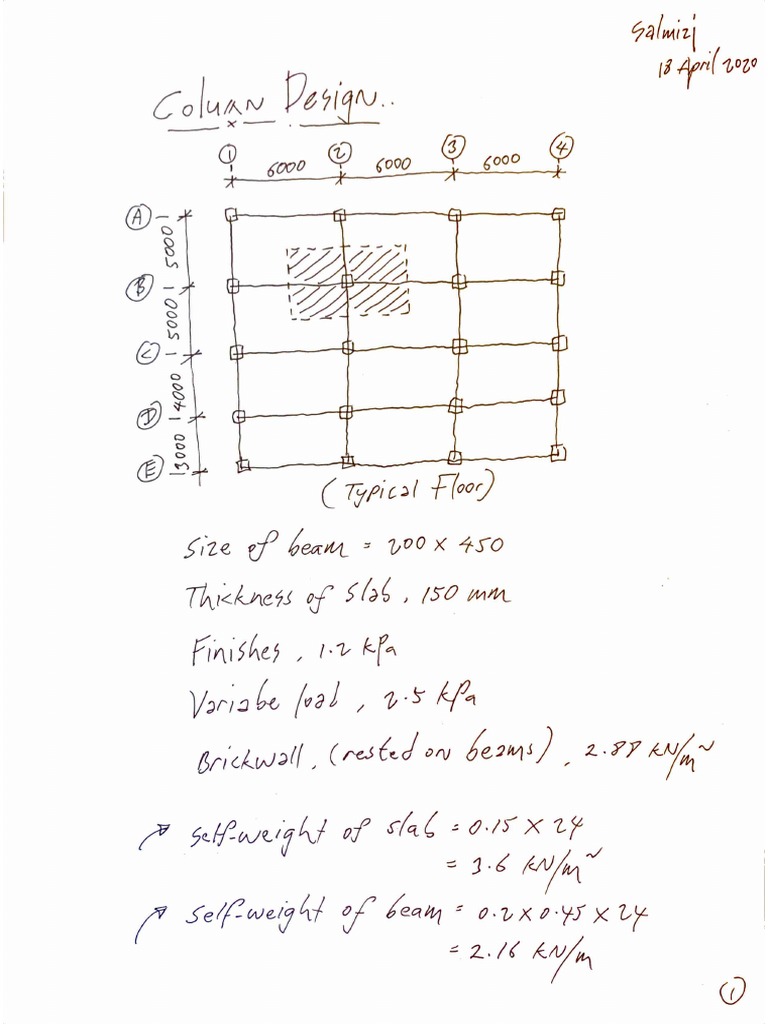 Salmizi
18 April 2020
Column Design..
1 2 3 4
6000 6000 6000
A
5000
B
5000
C
4000
D
3000
E
(Typical Floor)
Size of beam = 200 x 450
Thickness of slab, 150 mm
Finishes, 1.2 kPa
Variabe load, 2.5 kPa
Brickwall, (rested on beams), 2.88 kN/m²
↗ self-weight of slab = 0.15 x 24
= 3.6 kN/m²
↗ self-weight of beam = 0.2 x 0.45 x 24
= 2.16 kN/m
1